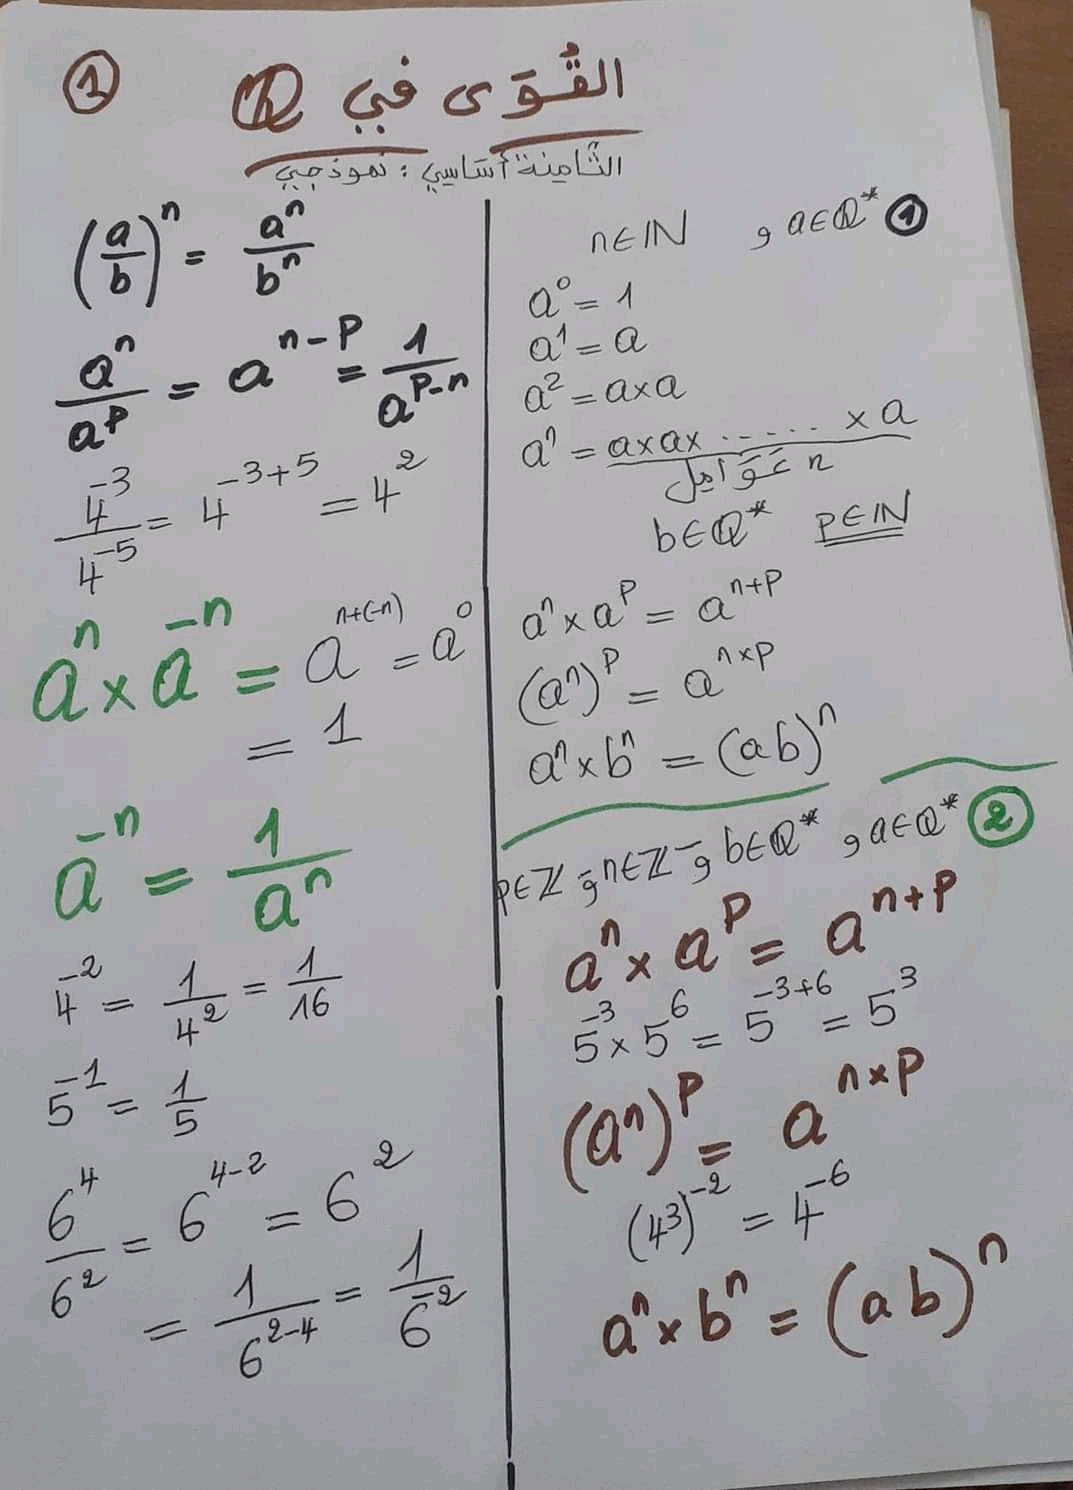 1
القُوَى في ℚ
الثّامنة أسَاسِي : نموذجي
① a∈ℚ* و n∈ℕ
a⁰ = 1
a¹ = a
a² = a×a
aⁿ = a×a×......×a
n عَوَامِل
b∈ℚ* p∈ℕ
aⁿ × a^p = a^(n+p)
(aⁿ)^p = a^(n×p)
aⁿ × bⁿ = (ab)ⁿ
② a∈ℚ* و b∈ℚ* و n∈ℤ⁻ و p∈ℤ
aⁿ × a^p = a^(n+p)
5⁻³ × 5⁶ = 5^(-3+6) = 5³
(aⁿ)^p = a^(n×p)
(4³)⁻² = 4⁻⁶
aⁿ × bⁿ = (ab)ⁿ
(a/b)ⁿ = aⁿ/bⁿ
aⁿ/a^p = a^(n-p) = 1/a^(p-n)
4⁻³/4⁻⁵ = 4^(-3+5) = 4²
aⁿ × a⁻ⁿ = a^(n+(-n)) = a⁰
= 1
a⁻ⁿ = 1/aⁿ
4⁻² = 1/4² = 1/16
5⁻¹ = 1/5
6⁴/6² = 6^(4-2) = 6²
= 1/6^(2-4) = 1/6⁻²